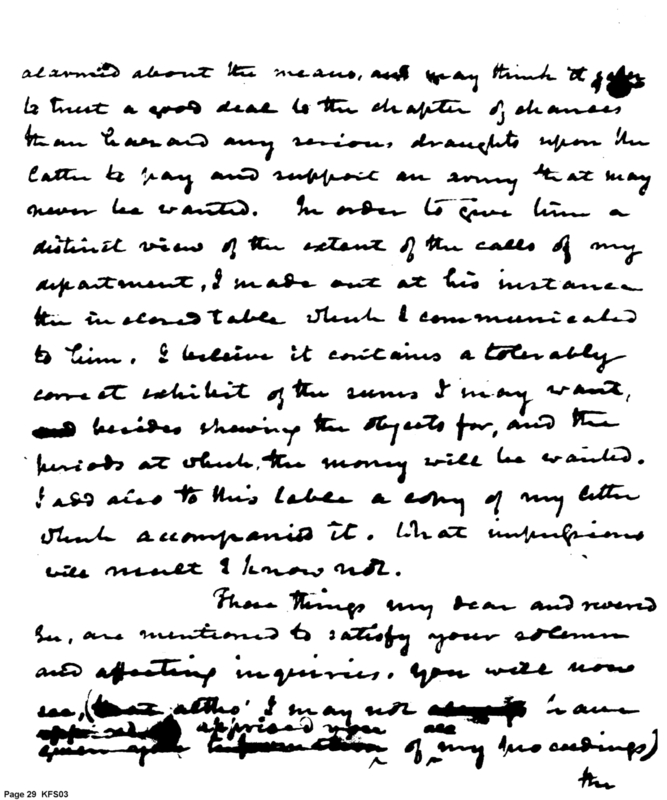 alarmed about the means, and may think it safer
to trust a good deal to the chapter of chances
than hazard any serious draughts upon the
latter to pay and support an army that may
never be wanted. In order to give him a
distinct view of the extent of the calls of my
department, I made out at his instance
the inclosed table which I communicated
to him. I beleive it contains a tolerably
correct exhibit of the sums I may want,
and besides shewing the objects for, and the
periods at which, the money will be wanted.
I add also to this table a copy of my letter
which accompanied it. What impulsions
will result I know not.
These things my dear and revered
Sir, are mentioned to satisfy your solemn
and affecting inquiries. You will now
see, (that altho' I may not have
apprised you all
given you information of my proceedings)
the
Page 29 KFS03